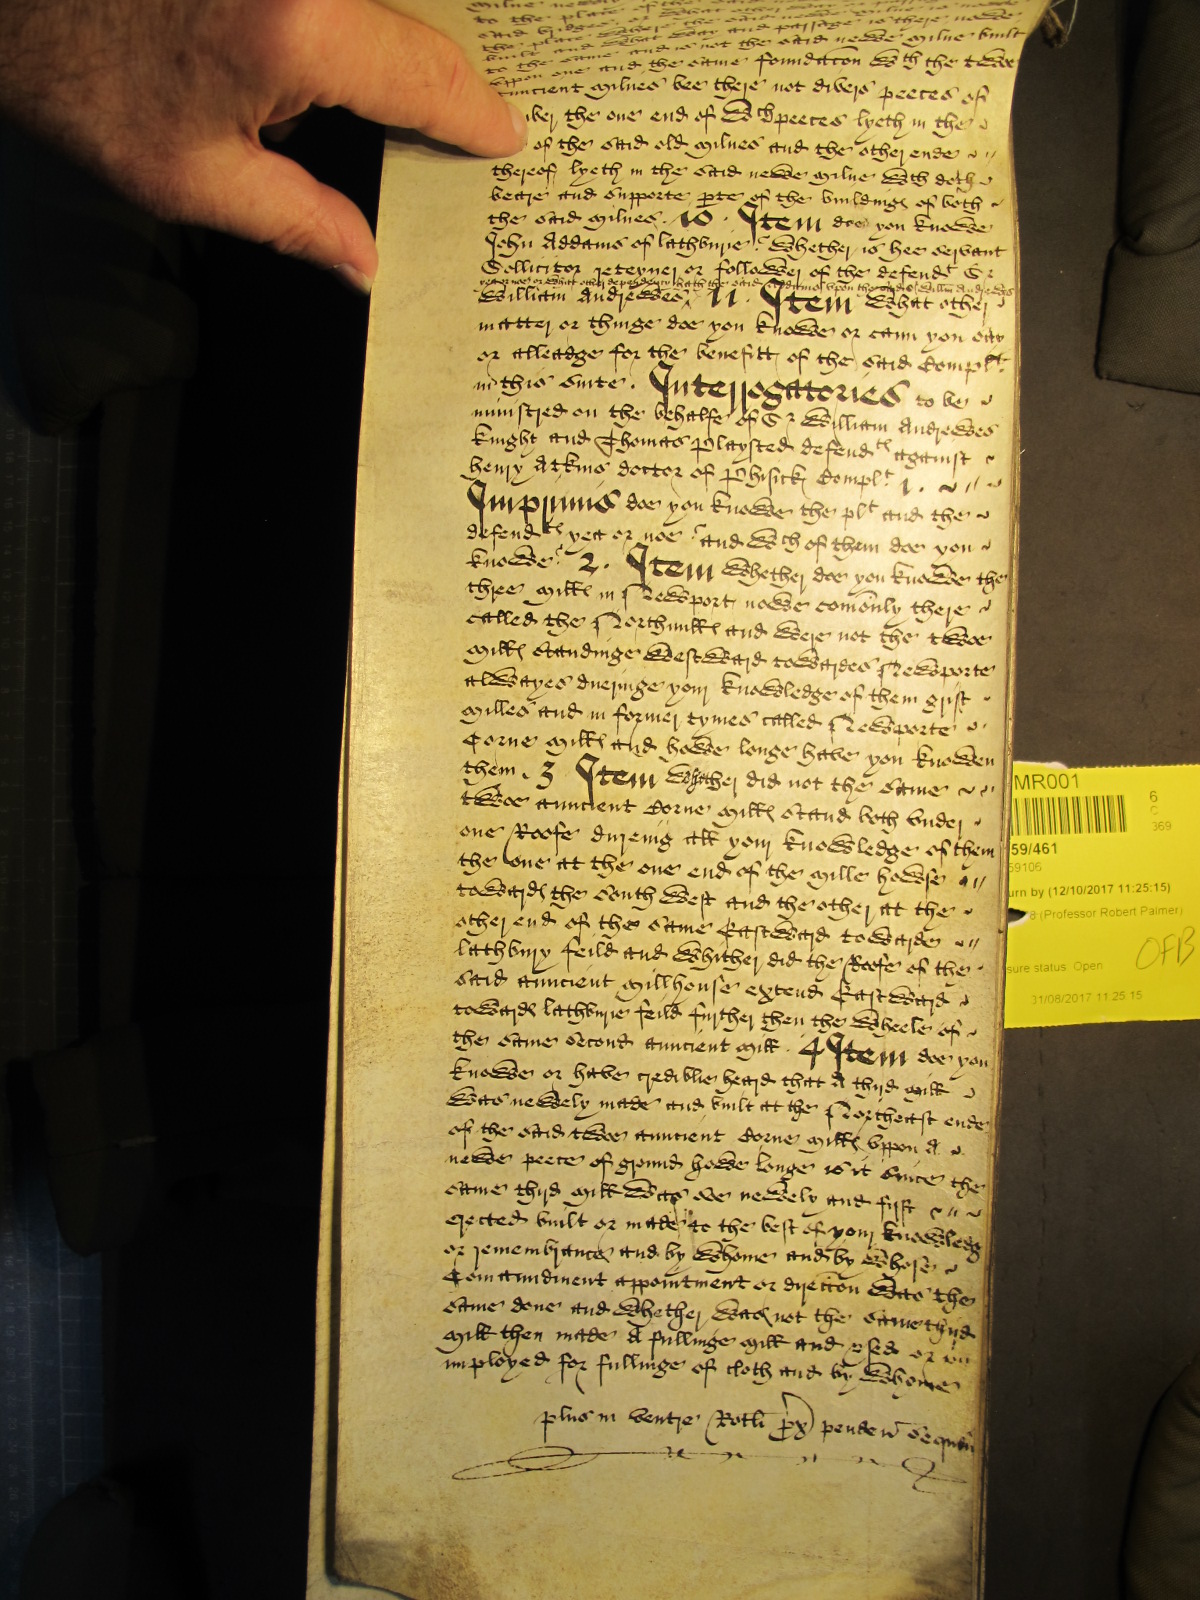 to the place of the
said bridges or what other
the place where the said newe
built and what way and passage is there nowe
to the same and is not the said newe milne built
uppon one and the same foundacon wth the twoe
auncient milnes bee there not divers peeces of
the one end of wch peeces lyeth in the
of the said old milnes and the other ende
thereof lyeth in the said newe milne wch doth
beare and supporte pte of the building of both
the said milnes. 10. Item doe you knowe
John Addams of lathburie? Whether is hee servant
Sollicitor reteyner or follower of the defendt Sr
or what other dependency hath the said Addams upon the said Sr Willm Andrewes
William Andrewes, 11. Item what other
matter or thinge doe you knowe or cann you say
or alleadge for the benefitt of the said Complt
in this suite. Interrogatories to be
ministred on the behalfe of Sr William Andrewes
knight and Thomas Playsted defendts against
henry Atkins doctor of Phisick Complt. 1.
Imprimis doe you knowe the plt and the
defendts yea or noe? and wch of them doe you
knowe? 2. Item whether doe you knowe the
three mills in Newport nowe comonly there
called the Northmills and were not the twoe
mills standinge westward towardes Newporte
alwayes dueringe your knowledge of them grist
milles and in former tymes called Newporte
Corne mills and howe longe have you knowen
them. 3 Item whether did not the same
twoe auncient Corne mills stand both under
one Roofe dureing all your knowledge of them
the one at the one end of the mille howse
towards the South West and the other at the
other end of the same Eastward towards
lathbury feild and whither did the Roofe of the
said auncient millhouse extend Eastward
towards lathburie feild further then the wheele of
the same second auncient mill. 4 Item doe you
knowe or have credible heard that A third mill
was newely made and built at the Northeast ende
of the said twoe auncient Corne mills uppon A
newe peece of ground howe longe is it since the
same third mill was soe newely and first
erected built or made to the best of your knowledg
or remembrance and by whome and by whose
Comaundment appointment or direccon was the
same done and whether was not the same third
mill then made A fullinge mill and used or
imployed for fullinge of cloth and by whome
plus in ventre Rotli px penden sequen
MR001
6
C
369
59/461
59106
urn by (12/10/2017 11:25:15)
8 (Professor Robert Palmer)
OFB
sure status Open
31/08/2017 11:25:15